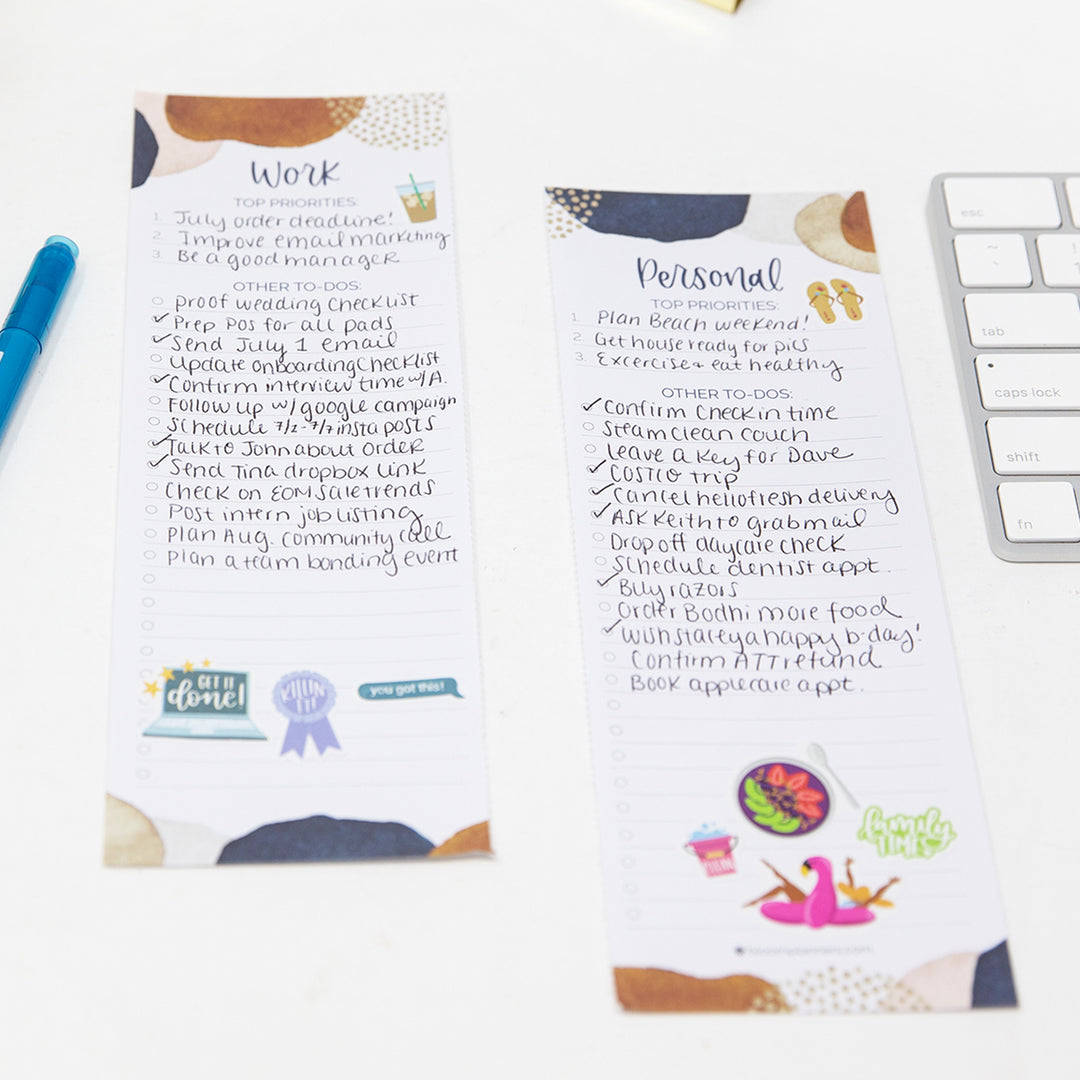 Work
TOP PRIORITIES:
1. July order deadline!
2. Improve email marketing
3. Be a good manager
OTHER TO-DOS:
proof wedding checklist
✓ Prep Pos for all pads
✓ Send July 1 email
Update onboarding Checklist
✓ Confirm interview time w/A.
Follow up w/ google campaign
Schedule 7/2-7/7 insta posts
✓ Talk to John about order
✓ Send Tina dropbox link
Check on EOM sale trends
Post intern job listing
Plan Aug. community call
Plan a team bonding event
GET IT
done!
KILLIN'
IT!
you got this!
Personal
TOP PRIORITIES:
1. Plan Beach weekend!
2. Get house ready for pics
3. Excercise + eat healthy
OTHER TO-DOS:
✓ Confirm Check in time
Steam clean couch
leave a key for Dave
✓ COSTCO trip
✓ Cancel hellofresh delivery
✓ ASK Keith to grab mail
Drop off daycare check
Schedule dentist appt.
✓ Buy razors
Order Bodhi more food
✓ Wish stacey a happy b-day!
Confirm ATT refund
Book applecare appt.
family
TIMES
bloomplanners.com
esc
~
!
tab
caps lock
shift
fn